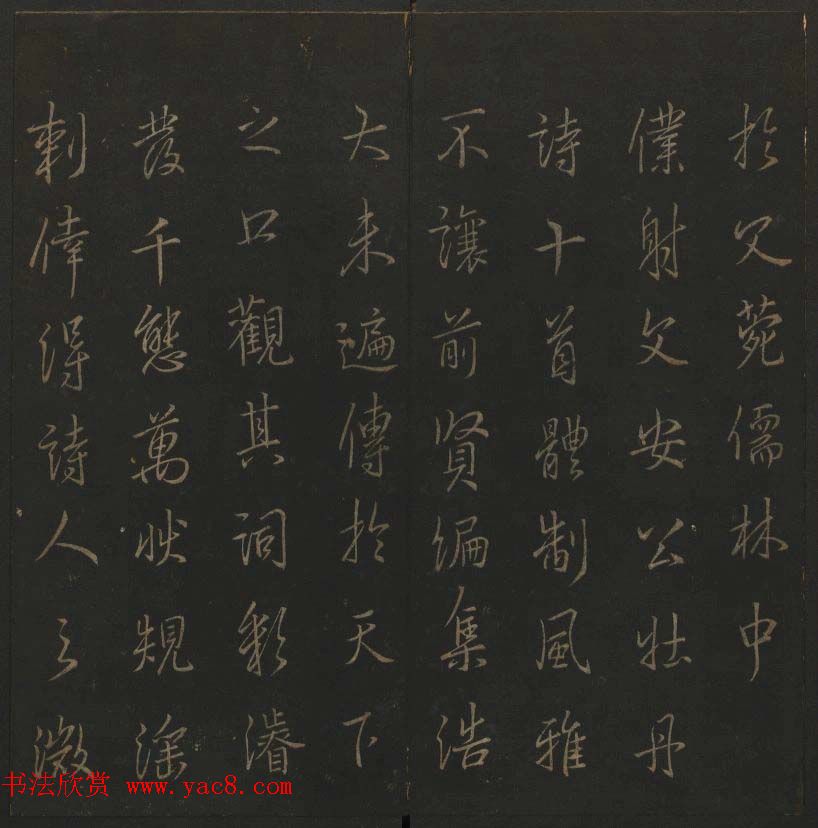 於文菀儒林中
僕射文安公牡丹
詩十首體制風雅
不讓前賢編集浩
大未遍傳於天下
之口觀其詞彩濬
發千態萬狀規淫
刺倖得詩人之微
书法欣赏 www.yac8.com